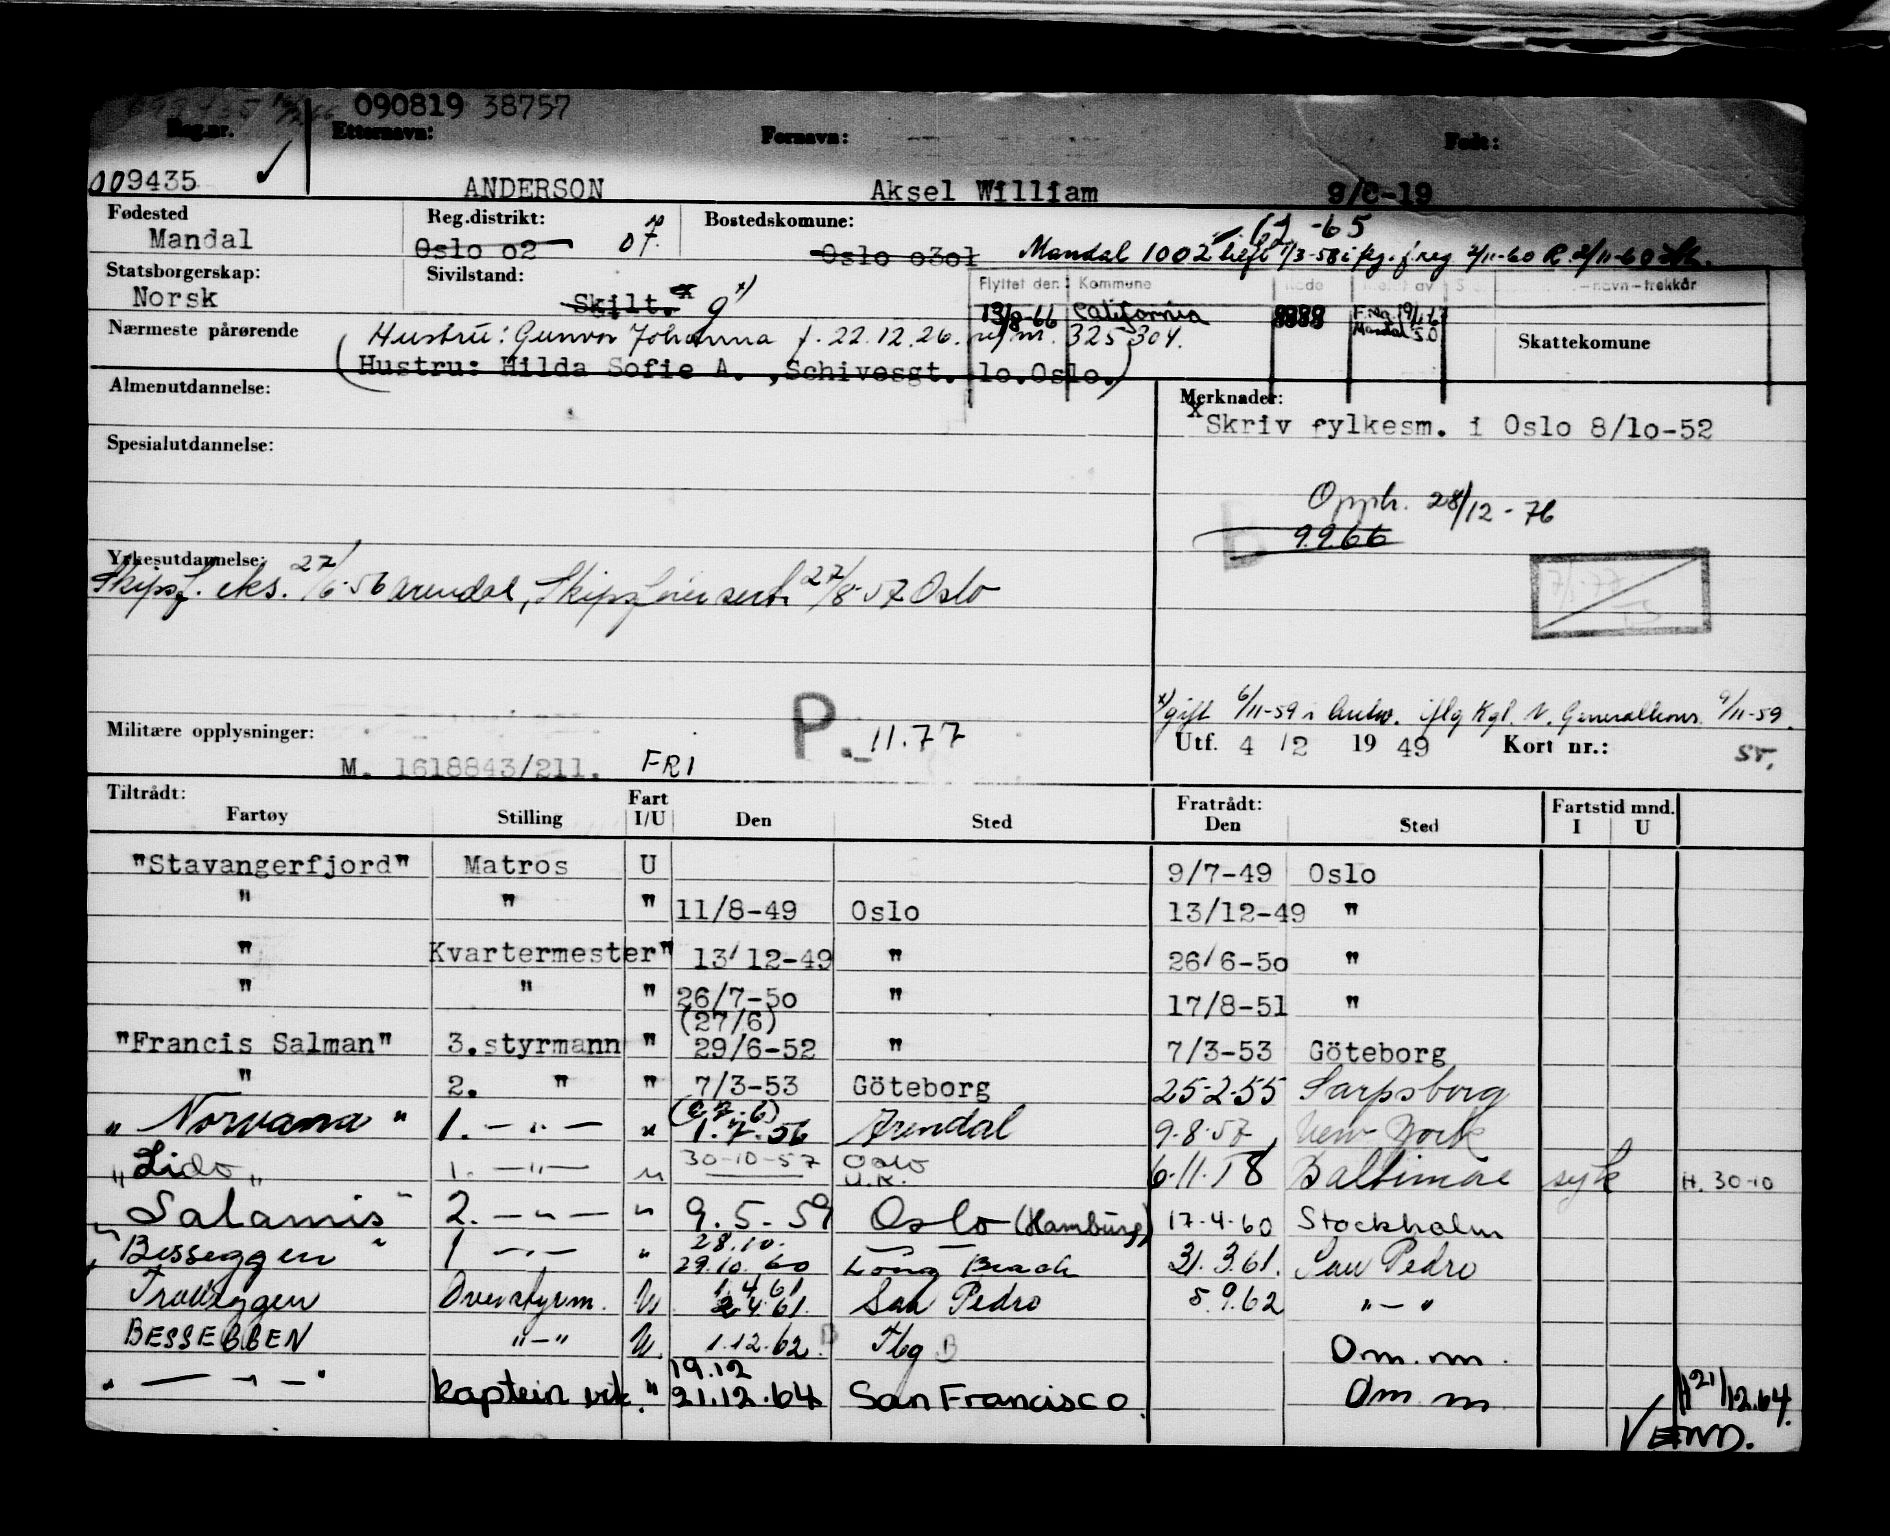 090819 38757
Reg.nr. Etternavn: Fornavn: Født:
009435 ANDERSON Aksel William 9/8-19
Fødested Reg.distrikt: Bostedskomune: -65
Mandal Oslo o2 07. Oslo o3o1 Mandal 1002
Statsborgerskap: Sivilstand: Flyttet den: Kommune
Norsk Skilt. x g x) 13/8-66 California
Nærmeste pårørende Hustru: Gunvor Johanna f. 22.12.26. ref.nr. 325304. Skattekomune
(Hustru: Hilda Sofie A. ,Schivesgt. 1o.Oslo.)
Almenutdannelse: Merknader:
x Skriv fylkesm. i Oslo 8/1o-52
Spesialutdannelse:
Opph. 28/12-76
9.9.66
Yrkesutdannelse:
Skipsf. eks. 27/6-56 Arendal, Skipsfører sert. 27/8-57 Oslo
x) gift 6/11-59 i Antw. iflg Kgl. N. Generalkons. 9/11-59.
Militære opplysninger: P. 11.77 Utf. 4/2 19 49 Kort nr.:
M. 1618843/211. FRI
Tiltrådt: Fart Fratrådt: Fartstid mnd.
Fartøy Stilling I/U Den Sted Den Sted I U
"Stavangerfjord" Matros U 9/7-49 Oslo
" " " 11/8-49 Oslo 13/12-49 "
" Kvartermester " 13/12-49 " 26/6-5o "
" " " 26/7-5o " 17/8-51 "
(27/6)
"Francis Salman" 3.styrmann " 29/6-52 " 7/3-53 Göteborg
" 2. " " 7/3-53 Göteborg 25-2-55 Sarpsborg
(27.6)
"Norvana" 1. -"- " 1.7.56 Arendal 9.8.57 New York
"Lido" 1. -"- " 30-10-57 Oslo U.K. 6.11.58 Baltimore syk H. 30-10
"Salamis" 2. -"- " 9.5.59 Oslo (Hamburg) 17-4-60 Stockholm
28.10.
"Besseggen" 1 -"- " 29.10.60 Long Beach 31.3.61. San Pedro
1.4.61
Trolleggen Overstyrm. U 2.4.61. San Pedro 5.9.62 "-"
BESSEGGEN "-" U. 1.12.62. Tbg Om.m.
19.12
"-"-" kaptein vik. " 21.12.64 San Francisco. Om.m H 21/12.64.
VEND.